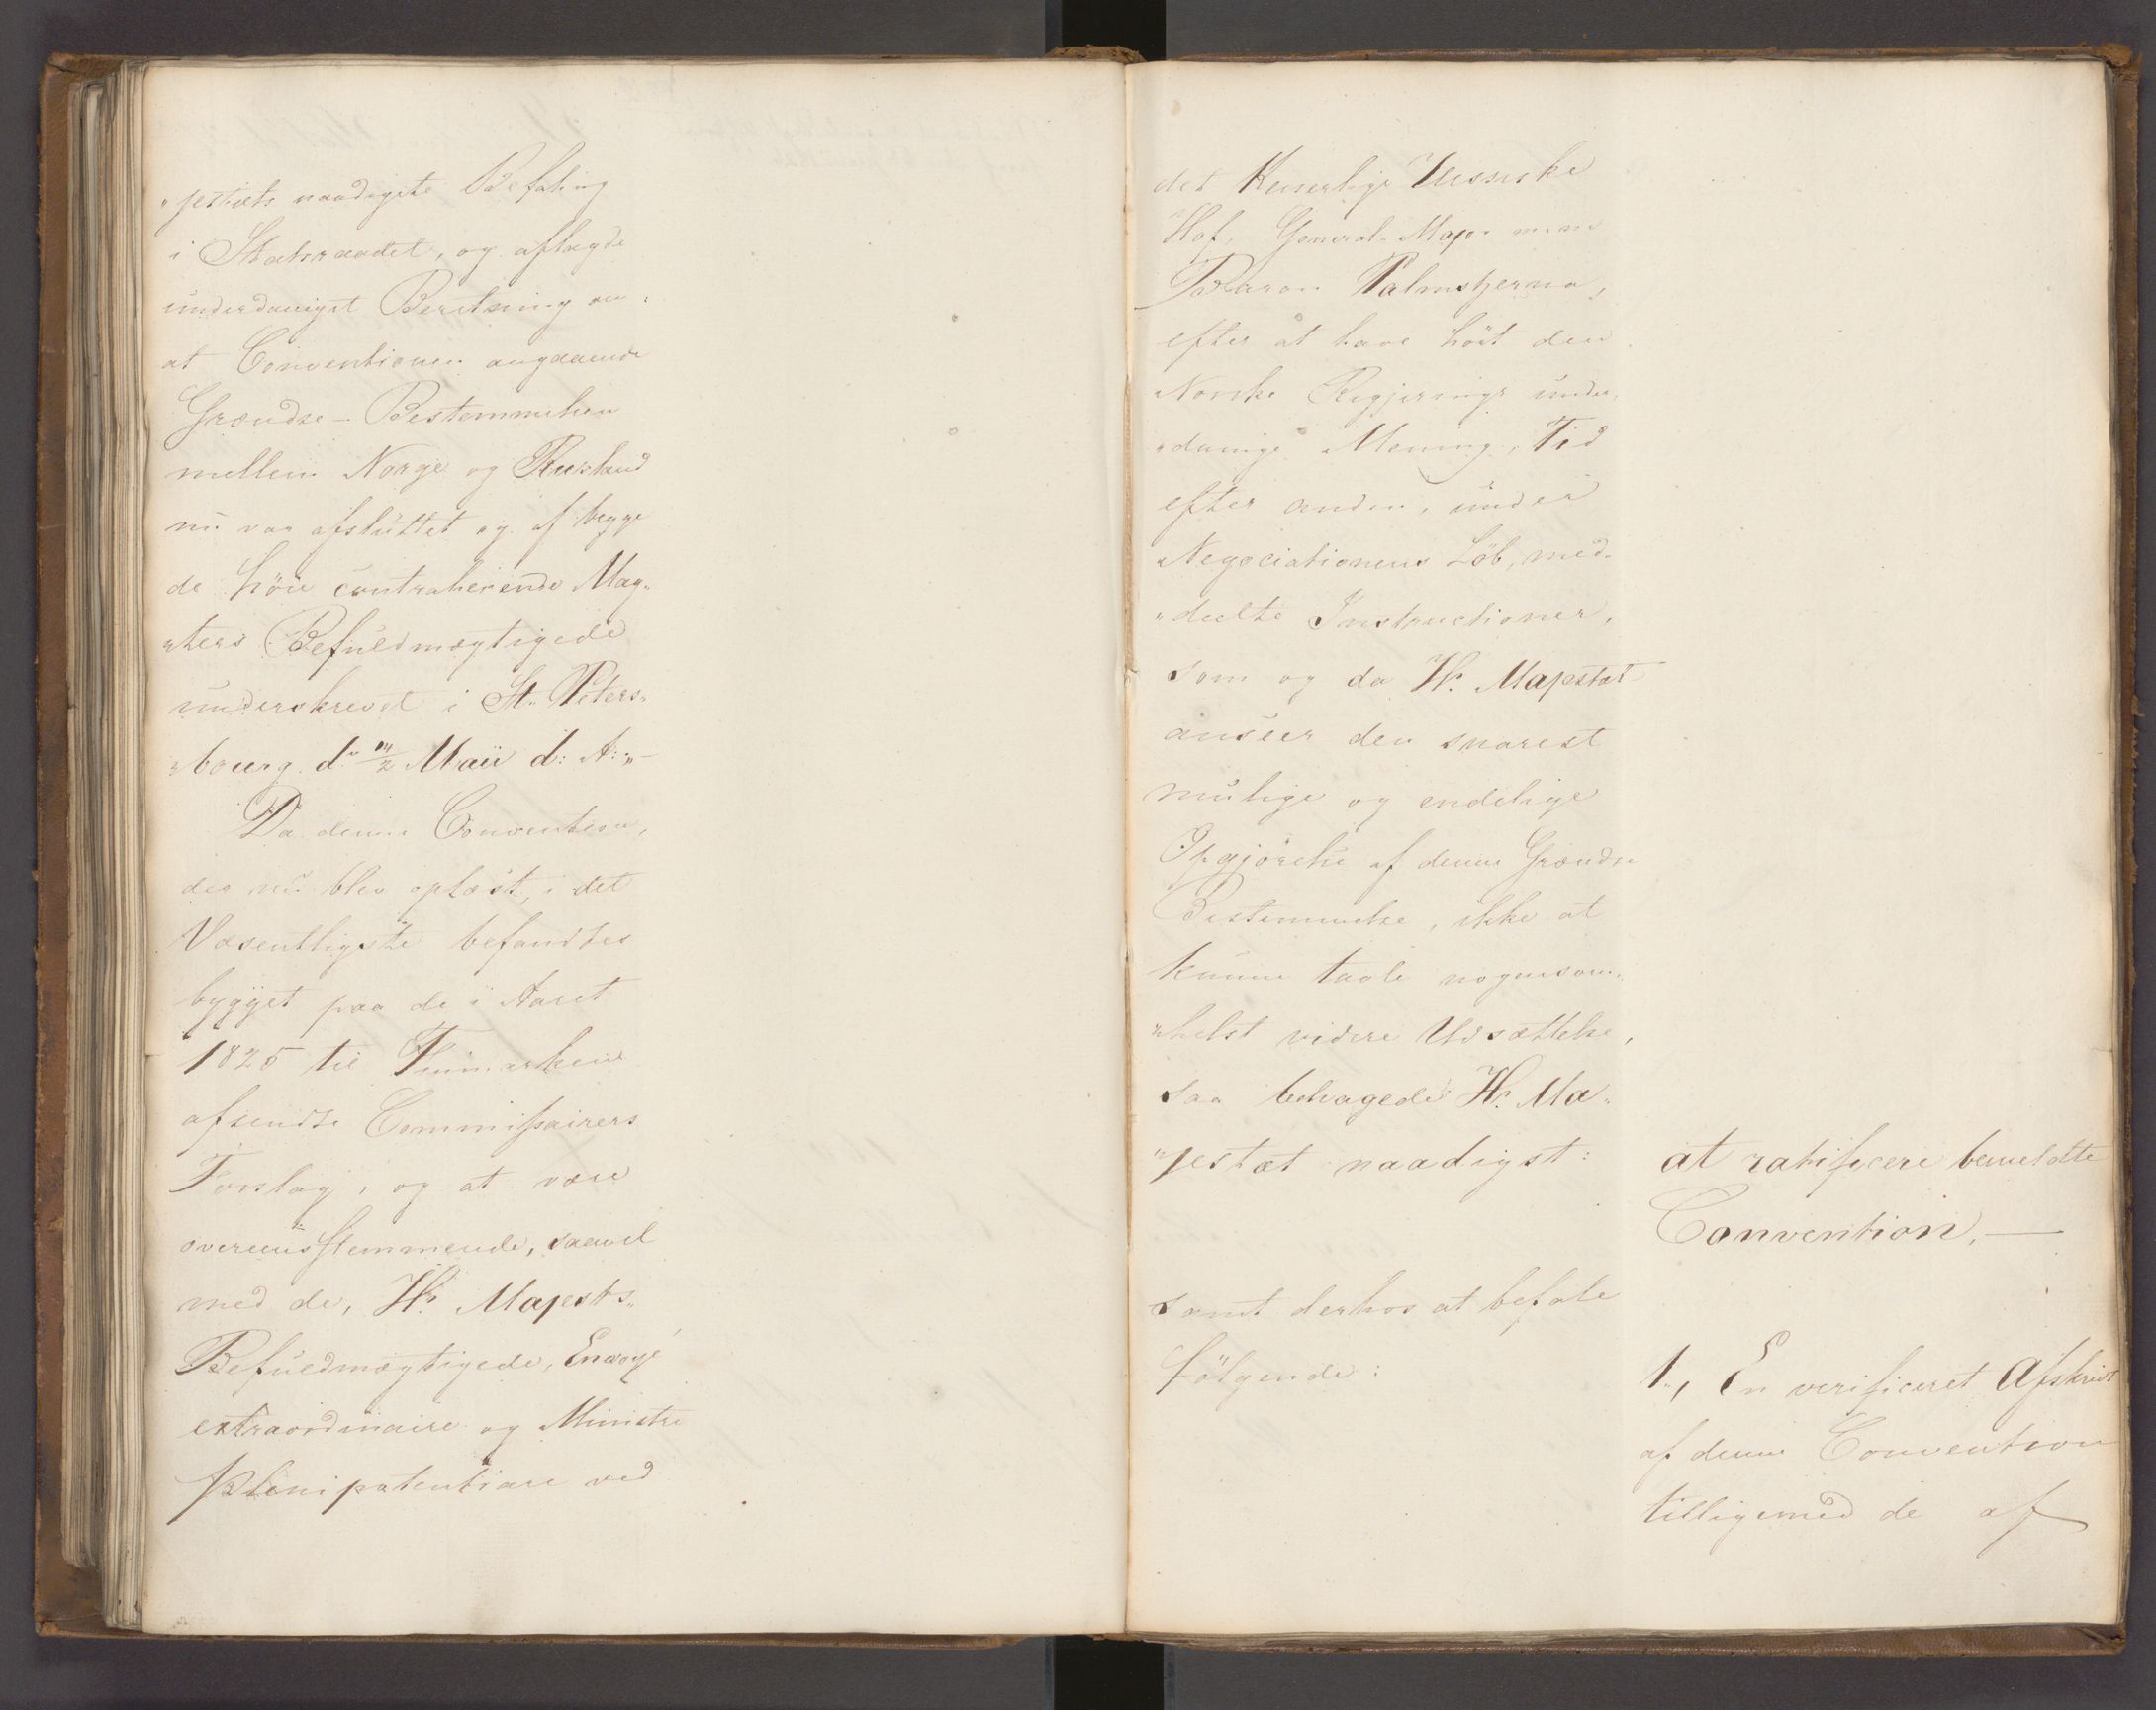 „jestæts naadigste Befaling
i Statsraadet, og aflagde
underdanigst Beretning om,
at Conventionen angaaende
Grændse-Bestemmelsen
mellem Norge og Rusland
nu var afsluttet og af begge
de höie contraherende Mag„
„ters Befuldmægtigede
underskrevet i St. Peters„
„bourg d. 14/2 Maii d: A:„—
Da denne Convention,
der nu blev oplæst, i det
Væsentligste befandtes
bygget paa de i Aaret
1825 til Finmarken
afsendte Commissairers
Forslag, og at være
overeensstemmende, saavel
med de, Hs. Majests„
Befuldmægtigede, Envoyé
extraordinaire og Ministre
plenipotentiare ved
det Keiserlige Russiske
Hof, General-Major m.m.
Baron Palmstjerna,
efter at have hört den
Norske Regjerings under„
„danige Mening, Tid
efter anden, under
Negociationens Löb, med„
„deelte Instructioner,
som og da Hs. Majestæt
anseer den snarest
mulige og endelige
Opgjörelse af denne Grændse
Bestemmelse, ikke at
kunne taale nogensom„
„helst videre Udsættelse,
saa behagede Hs. Ma„
„jestæt naadigst:
at ratificere bemeldte
Convention.—
samt derhos at befale
følgende:
1., En verificeret Afskrivt
af denne Convention
tilligemed de af